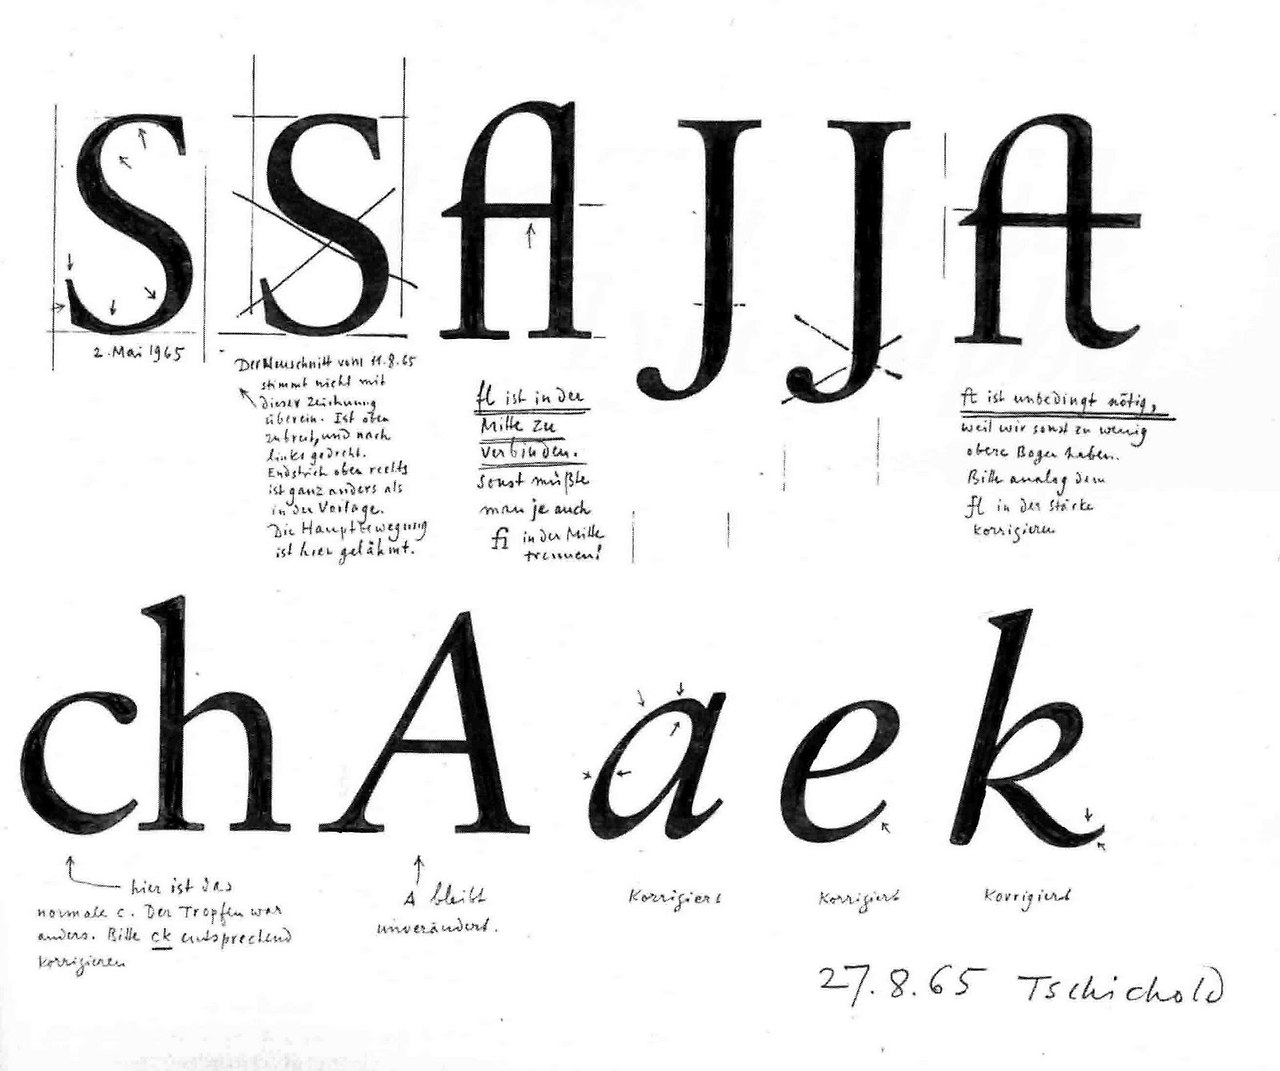 S S fl J J ft
2. Mai 1965
Der Neuschnitt vom 11.8.65
stimmt nicht mit
dieser Zeichnung
überein. Ist oben
zu breit, und nach
links gedreht.
Endstrich oben rechts
ist ganz anders als
in der Vorlage.
Die Hauptbewegung
ist hier gelähmt.
fl ist in der
Mitte zu
verbinden.
Sonst müßte
man je auch
fi in der Mitte
trennen!
ft ist unbedingt nötig,
weil wir sonst zu wenig
obere Bogen haben.
Bitte analog dem
fl in der Stärke
korrigieren
ch A a e k
hier ist das
normale c. Der Tropfen war
anders. Bitte ck entsprechend
korrigieren
A bleibt
unverändert.
Korrigiert
Korrigiert
Korrigiert
27.8.65 Tschichold